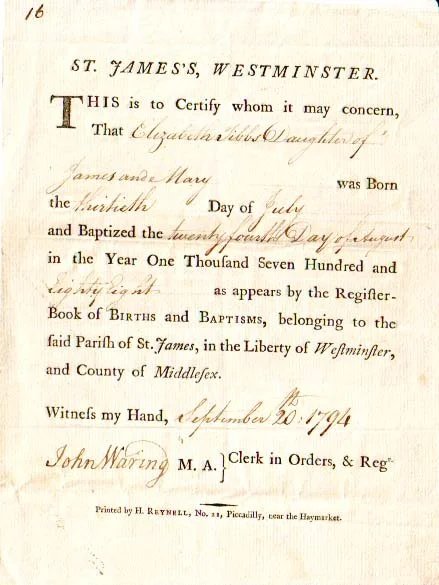 16
ST. JAMES'S, WESTMINSTER.
THIS is to Certify whom it may concern,
That Elizabeth Tibbs Daughter of
James and Mary was Born
the thirtieth Day of July
and Baptized the twenty fourth Day of August
in the Year One Thouſand Seven Hundred and
Eighty Eight as appears by the Regiſter-
Book of BIRTHS and BAPTISMS, belonging to the
ſaid Pariſh of St. James, in the Liberty of Weſtminſter,
and County of Middleſex.
Witneſs my Hand, September 20th: 1794
John Waring M. A. } Clerk in Orders, & Regr
Printed by H. REYNELL, No. 21, Piccadilly, near the Haymarket.